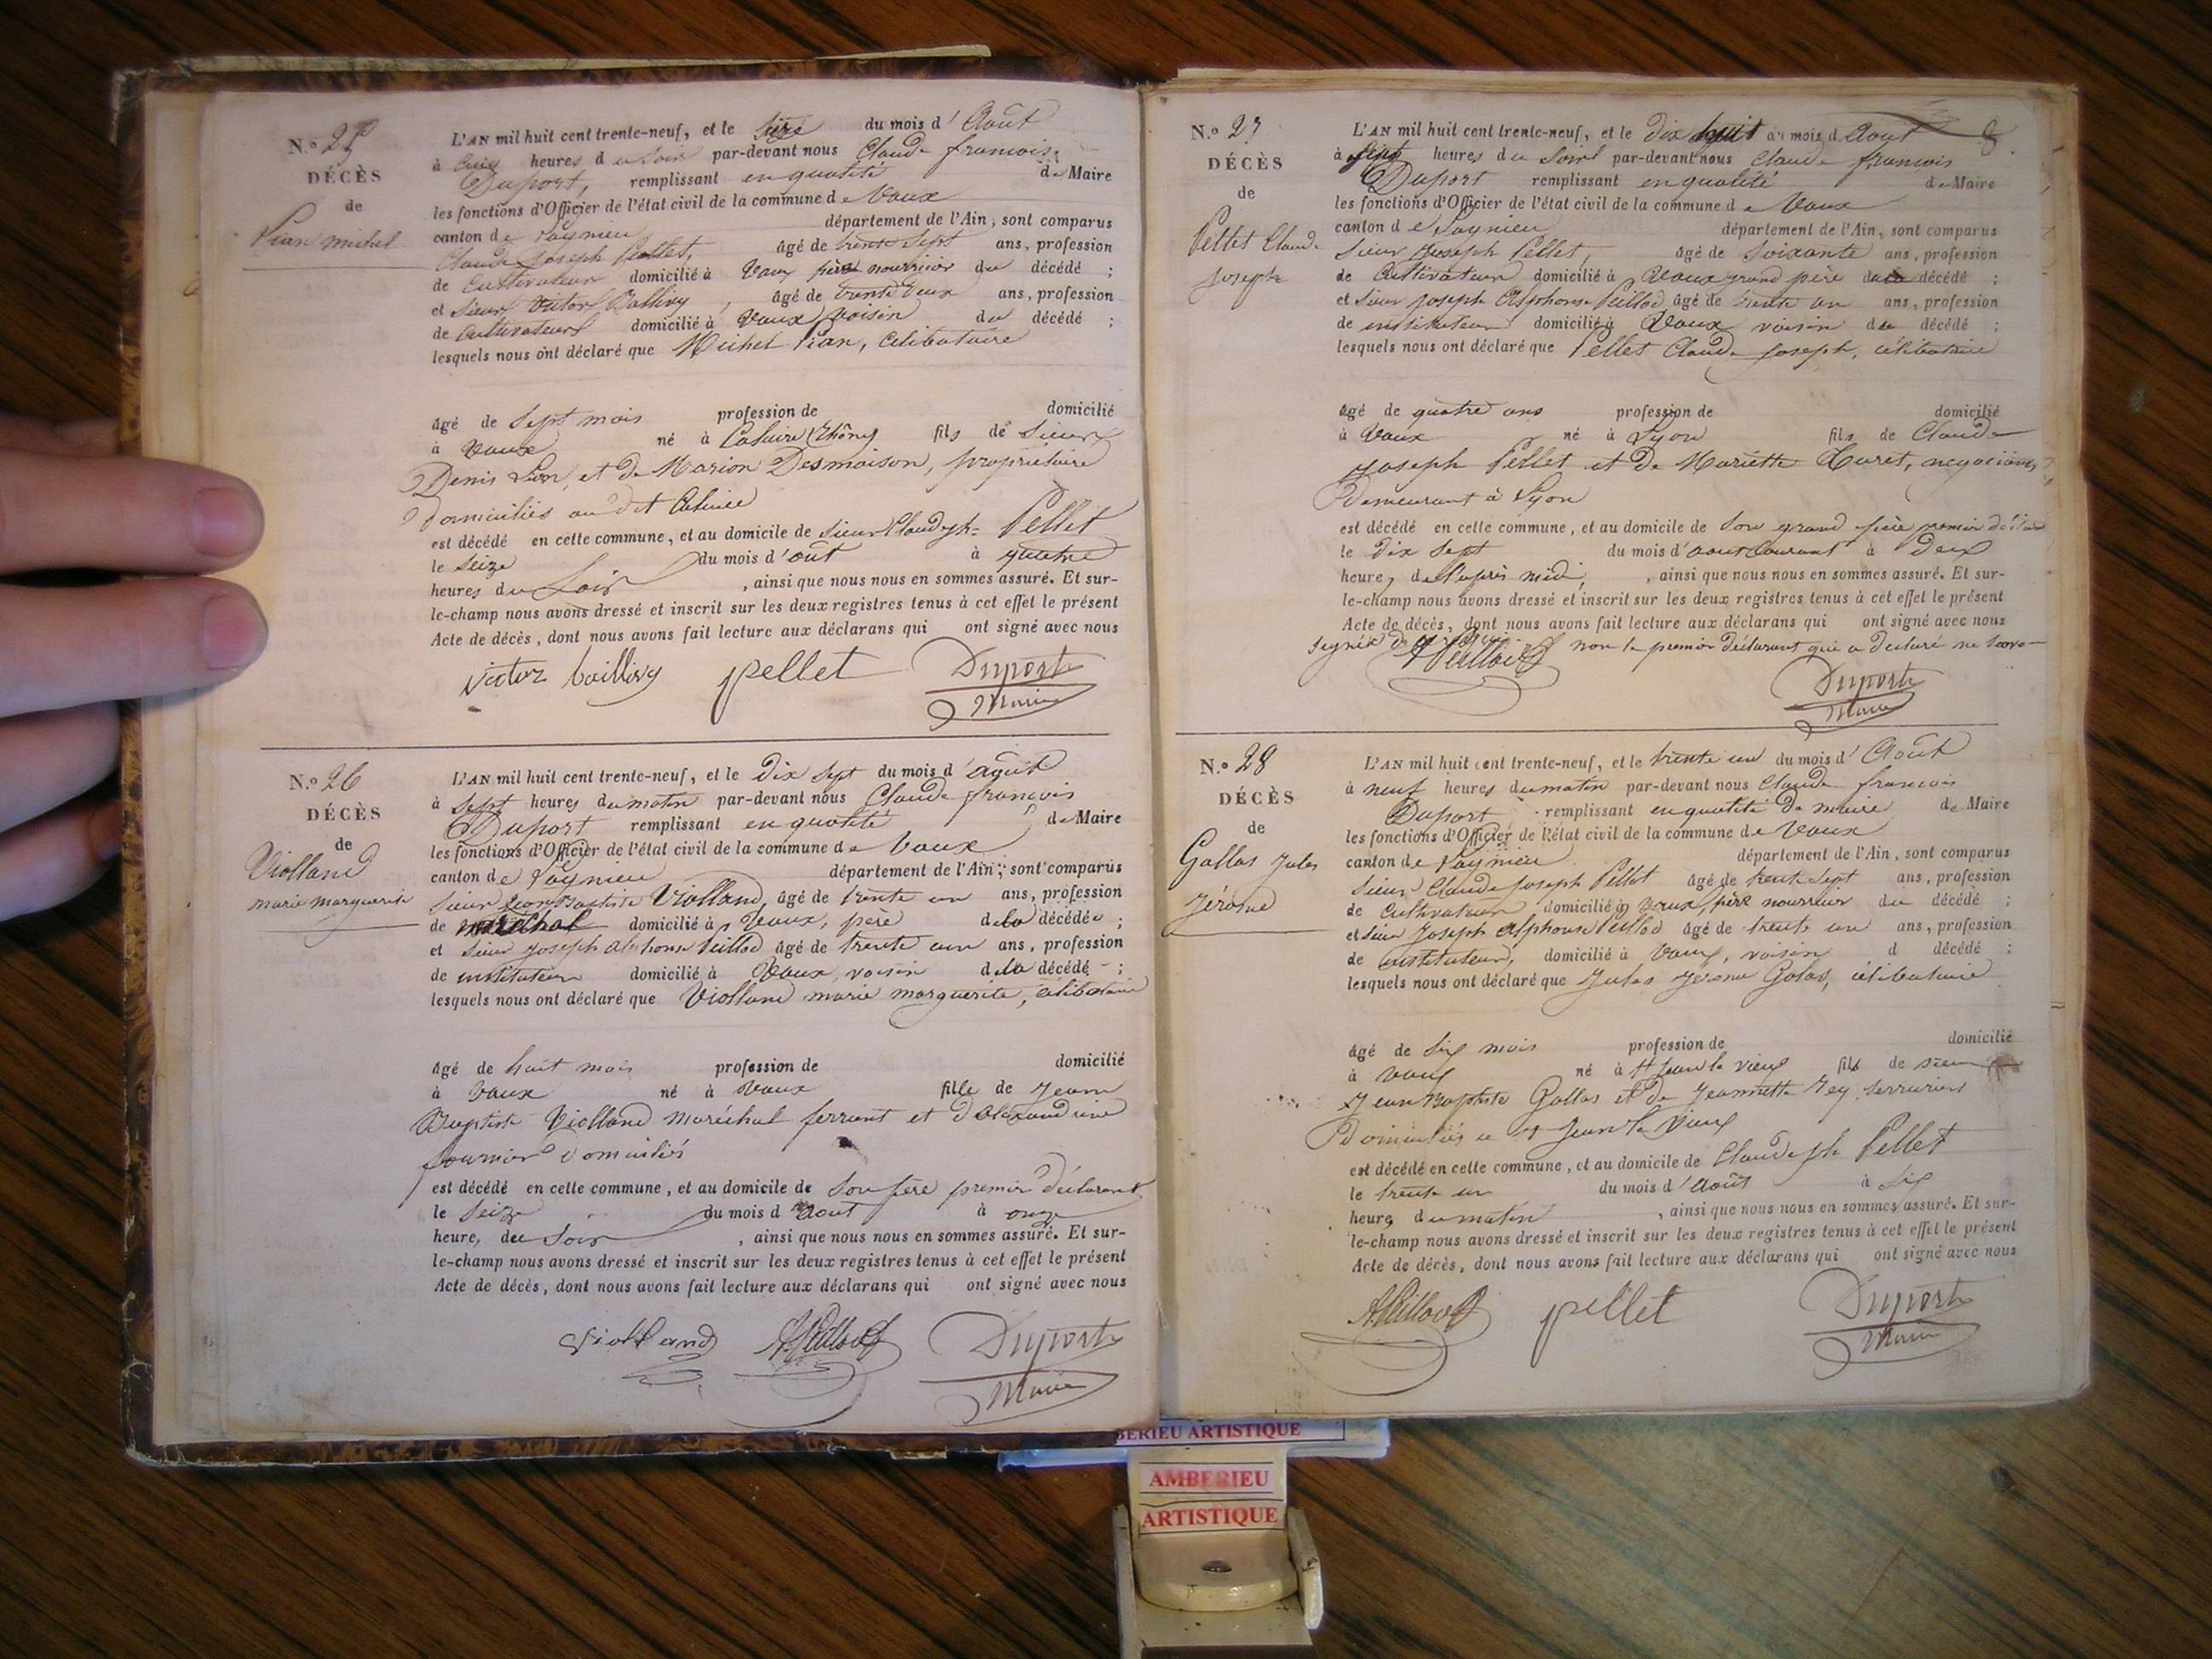 N.o 25
DÉCÈS
de
Pian michel
L'AN mil huit cent trente-neuf, et le seize du mois d'Août
à heures du soir par-devant nous Claude francois
Duport, remplissant en qualité de Maire
les fonctions d'Officier de l'état civil de la commune de Vaux
canton de Lagnieu département de l'Ain, sont comparus
Claude Joseph Pellet, âgé de trente sept ans, profession
de Cultivateur domicilié à Vaux père nourricier du décédé ;
et sieur Victor Baillivy, âgé de trente deux ans, profession
de Cultivateur domicilié à Vaux voisin du décédé ;
lesquels nous ont déclaré que Michel Pian, célibataire
âgé de sept mois profession de domicilié
à Vaux né à (Rhône) fils de sieur
Denis Pian, et de Marion Desmaison, propriétaire
domiciliés au dit
est décédé en cette commune, et au domicile de sieur Claude jh Pellet
le seize du mois d'out à quatre
heures du Soir, ainsi que nous nous en sommes assuré. Et sur-
le-champ nous avons dressé et inscrit sur les deux registres tenus à cet effet le présent
Acte de décès, dont nous avons fait lecture aux déclarans qui ont signé avec nous
victor baillivy pellet Duport
Maire
N.o 26
DÉCÈS
de
Violland
marie marguerite
L'AN mil huit cent trente-neuf, et le dix sept du mois d'août
à sept heures du matin par-devant nous Claude francois
Duport remplissant en qualité de Maire
les fonctions d'Officier de l'état civil de la commune de Vaux
canton de Lagnieu département de l'Ain, sont comparus
sieur Jean Baptiste Violland, âgé de trente un ans, profession
de maréchal domicilié à Vaux, père de la décédée ;
et sieur Joseph alphonse Peillod âgé de trente un ans, profession
de instituteur domicilié à Vaux, voisin de la décédé ;
lesquels nous ont déclaré que Violland marie marguerite, célibataire
âgé de huit mois profession de domicilié
à Vaux né à Vaux fille de Jean
Baptiste Violland maréchal ferrant et d'alexandrine
fournier domiciliés
est décédé en cette commune, et au domicile de son père premier déclarant
le Seize du mois d'aout à onze
heures du Soir, ainsi que nous nous en sommes assuré. Et sur-
le-champ nous avons dressé et inscrit sur les deux registres tenus à cet effet le présent
Acte de décès, dont nous avons fait lecture aux déclarans qui ont signé avec nous
Violland APeillod Duport
Maire
8
N.o 27
DÉCÈS
de
Pellet Claude
Joseph
L'AN mil huit cent trente-neuf, et le dix huit du mois d'Aout
à sept heures du soir par-devant nous Claude francois
Duport remplissant en qualité de Maire
les fonctions d'Officier de l'état civil de la commune de Vaux
canton de Lagnieu département de l'Ain, sont comparus
sieur Joseph Pellet, âgé de soixante ans, profession
de Cultivateur domicilié à Vaux grand père du décédé ;
et sieur Joseph Alphonse Peillod âgé de trente un ans, profession
de instituteur domicilié à Vaux voisin du décédé ;
lesquels nous ont déclaré que Pellet Claude Joseph, célibataire
âgé de quatre ans profession de domicilié
à Vaux né à Lyon fils de Claude
Joseph Pellet et de Mariette Curet, negociants
Demeurant à Lyon
est décédé en cette commune, et au domicile de son grand père premier déclarant
le dix sept du mois d'aout courant à deux
heures de l'après midi, ainsi que nous nous en sommes assuré. Et sur-
le-champ nous avons dressé et inscrit sur les deux registres tenus à cet effet le présent
Acte de décès, dont nous avons fait lecture aux déclarans qui ont signé avec nous
non le premier déclarant qui a declaré ne savoir
signer APeillod
Duport
Maire
N.o 28
DÉCÈS
de
Gallas Jules
Jérome
L'AN mil huit cent trente-neuf, et le trente un du mois d'Août
à neuf heures du matin par-devant nous Claude francois
Duport remplissant en qualité de maire de Maire
les fonctions d'Officier de l'état civil de la commune de Vaux
canton de Lagnieu département de l'Ain, sont comparus
sieur Claude Joseph Pellet âgé de trente sept ans, profession
de Cultivateur domicilié à Vaux, père nourricier du décédé ;
et sieur Joseph Alphonse Peillod âgé de trente un ans, profession
de instituteur, domicilié à Vaux, voisin d décédé ;
lesquels nous ont déclaré que Jules Jérome Galas, célibataire
âgé de six mois profession de domicilié
à Vaux né à St Jean le vieux fils de sieur
Jean Baptiste Gallas et de Jeannette Rey serruriers
Domiciliés à St Jean le Vieux
est décédé en cette commune, et au domicile de Claude jph Pellet
le trente un du mois d'Août à six
heures du matin, ainsi que nous nous en sommes assuré. Et sur-
le-champ nous avons dressé et inscrit sur les deux registres tenus à cet effet le présent
Acte de décès, dont nous avons fait lecture aux déclarans qui ont signé avec nous
APeillod pellet Duport
Maire
BERIEU ARTISTIQUE
AMBERIEU
ARTISTIQUE